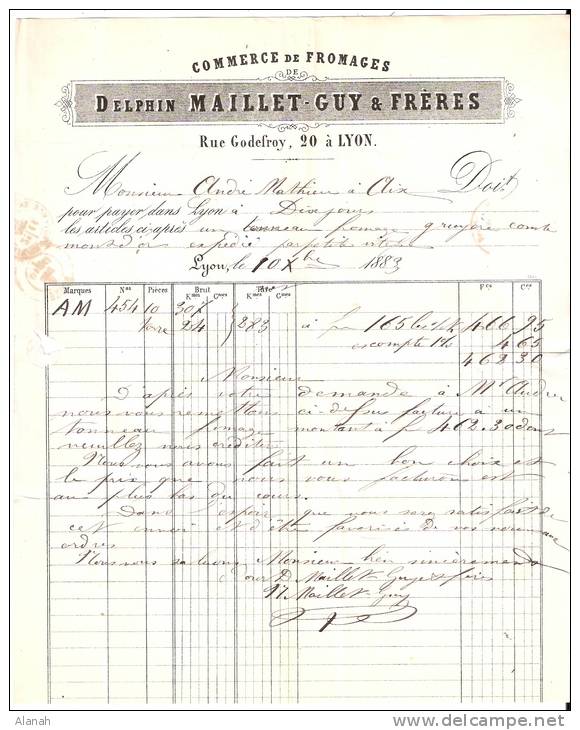 COMMERCE DE FROMAGES
DE
DELPHIN MAILLET-GUY & FRÈRES
Rue Godefroy, 20 à LYON.
Monsieur André Mathieu à Aix Doit
pour payer dans Lyon à Dix jours
les articles ci-après un tonneau fromage gruyère comté
mont d'or expédié par petite vitesse
Lyon, le 10 Xbre 1883
Marques Nos Pièces Brut Tare Fcs Ces
Kmes Cmes Kmes Cmes
AM 454 10 307 } 283 à f 165 les % k 466 95
tare 24 escompte 1% 4 65
462 30
Monsieur
D'après votre demande à Mr André
nous vous remettons ci-dessus facture a un
tonneau fromage montant à f 462.30 dont
veuillez nous créditer
Nous vous avons fait un bon choix et
le prix que nous vous facturons est
au plus bas du cours.
Dans l'espoir que vous serez satisfait de
cet envoi et d'être favorisés de vos nouveaux
ordres
Nous vous saluons Monsieur bien sincèrement
Pour D Maillet-Guy & frères
Maillet-Guy
Alanah
www.delcampe.net